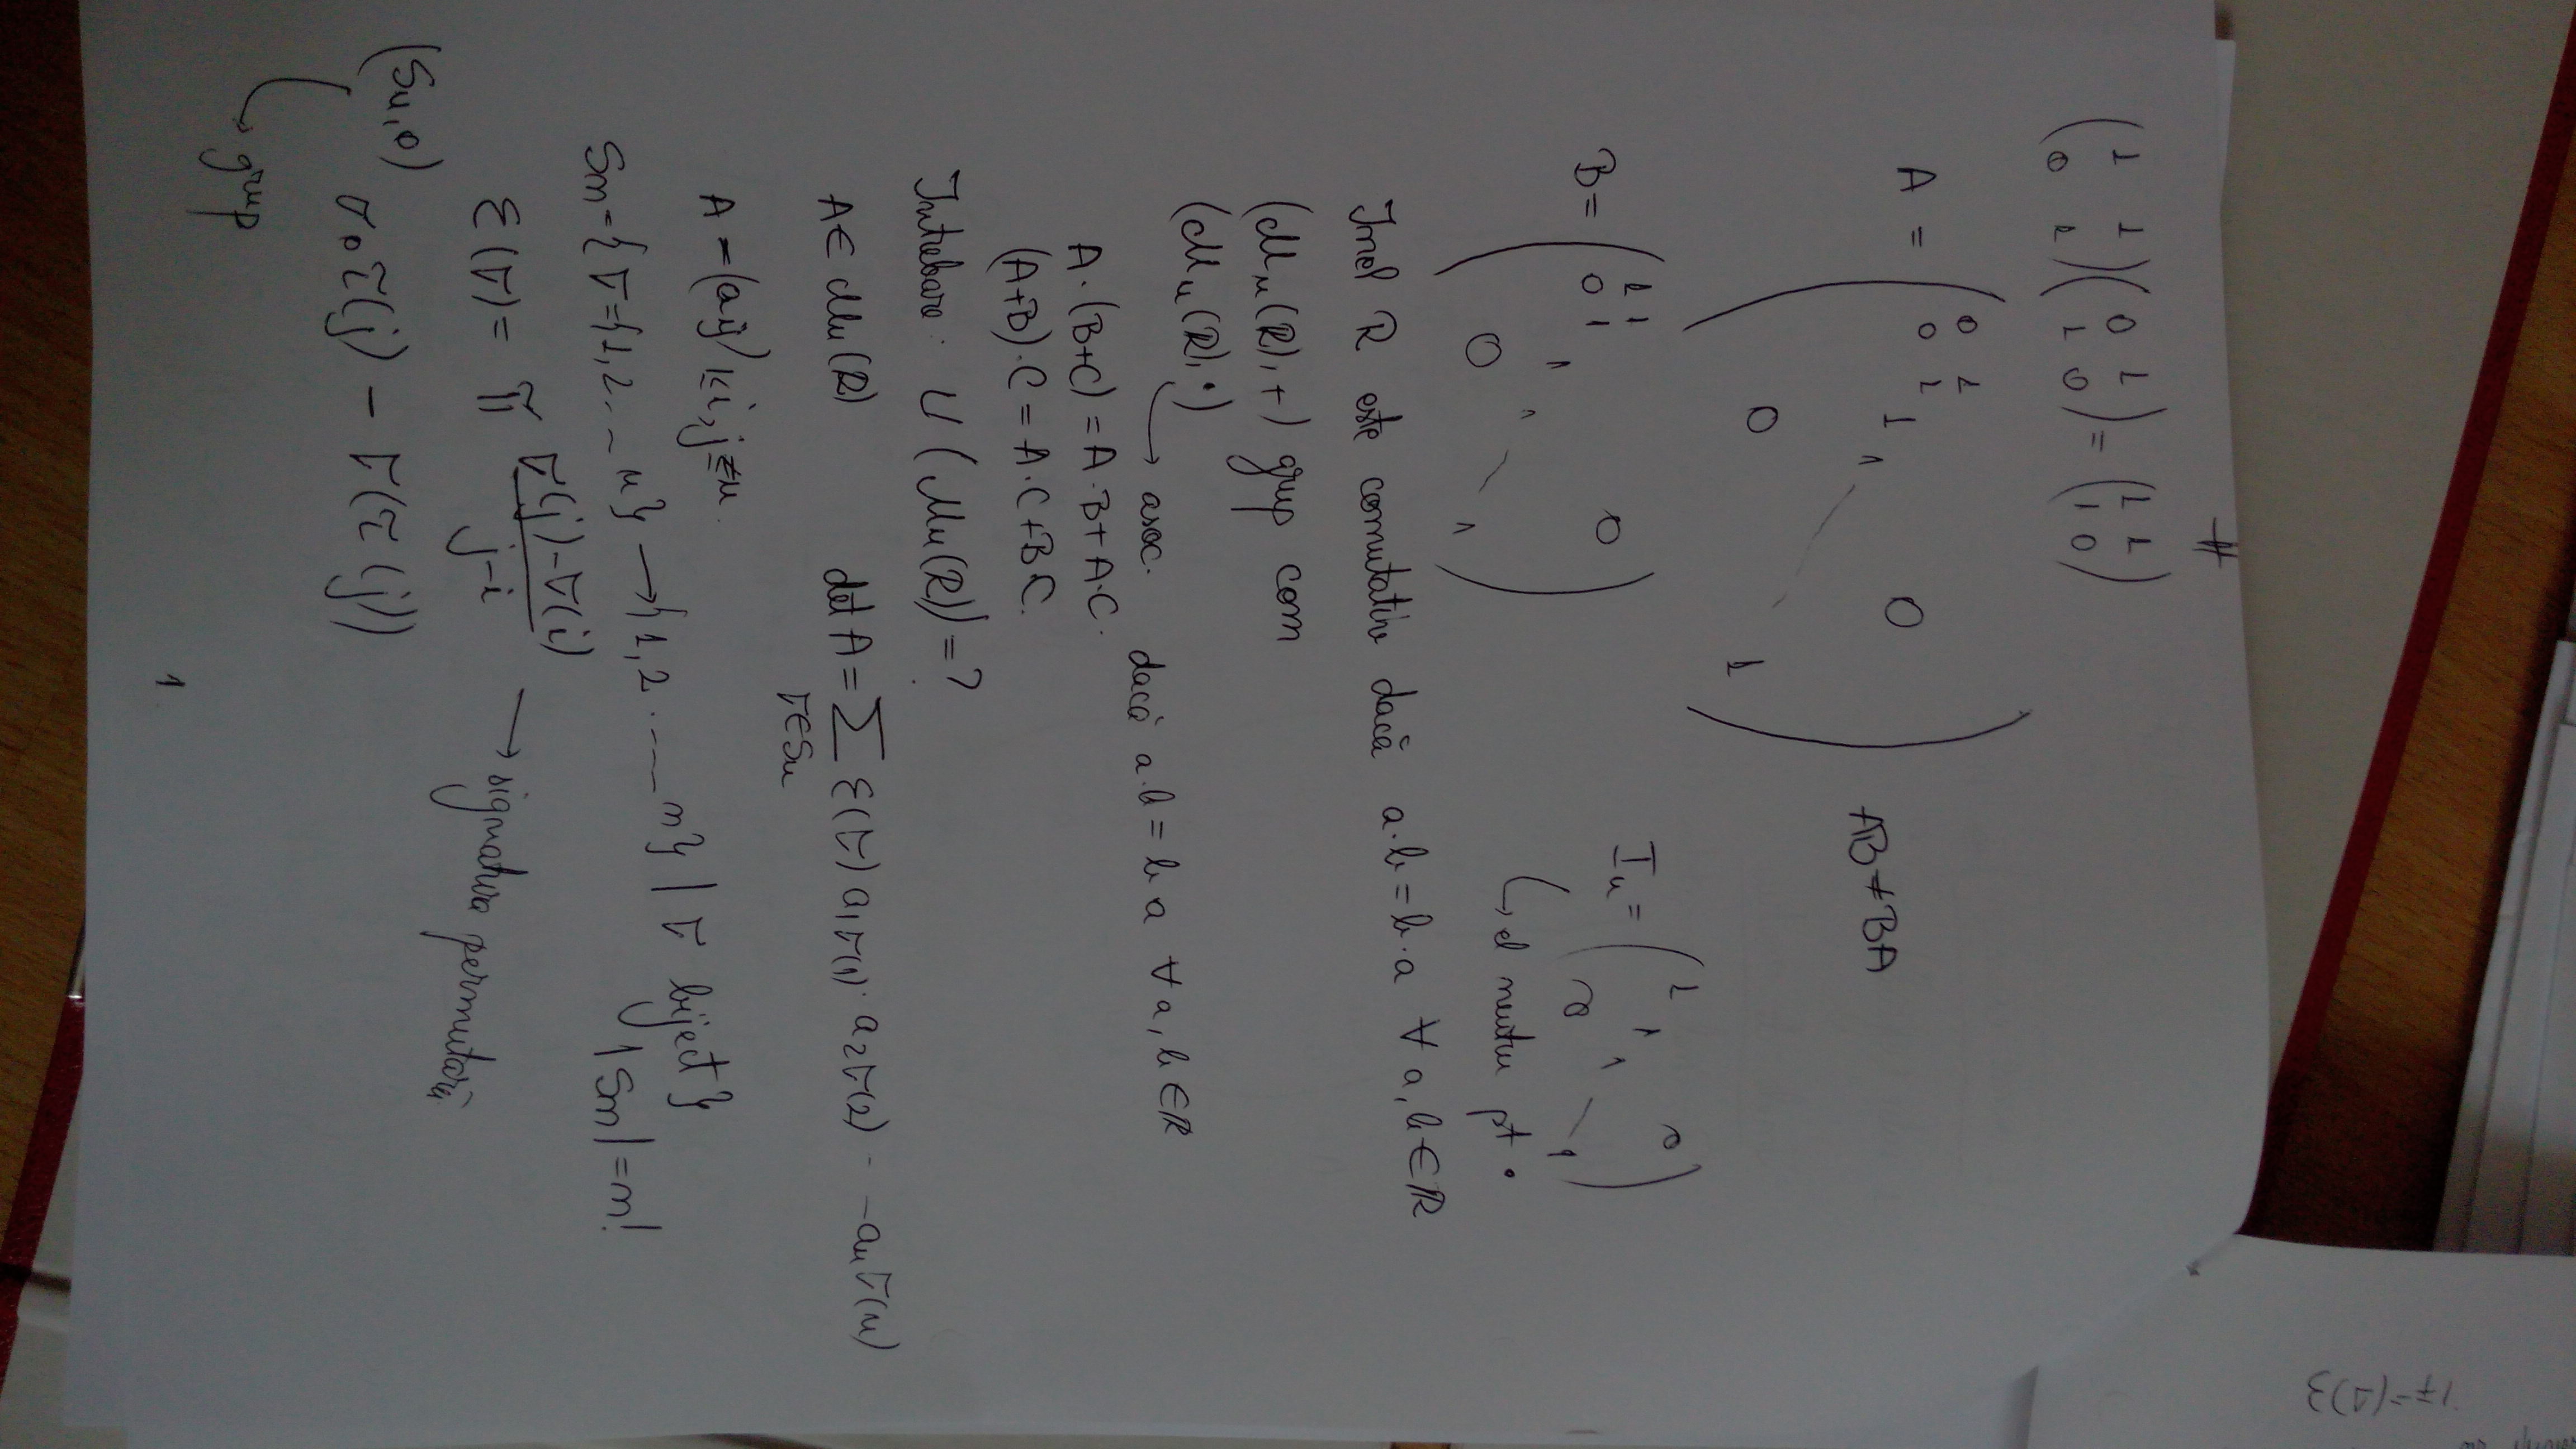 ≠
( 1 1 ; 0 1 ) ( 0 1 ; 1 0 ) = ( 1 1 ; 1 0 )
A = ( 0 1 0 ; 0 1 ; 1 ; 1 ; 0 1 ) AB ≠ BA
B = ( 1 1 0 ; 0 1 ; 1 ; 1 ; 0 1 ) In = ( 1 0 ; 1 ; 1 ; 0 1 )
↳ el neutru pt •
Inel R este comutativ dacă a·b = b·a ∀ a, b ∈ R
(Mn(R), +) grup com
(Mn(R), •) → asoc. dacă a·b = b a ∀ a, b ∈ R
A·(B+C) = A·B + A·C.
(A+B)·C = A·C + BC.
Intrebare: U(Mn(R)) = ?
A ∈ Mn(R) det A = Σ ε(σ) a1σ(1) · a2σ(2) - - anσ(n)
σ∈Sn
A = (aij) 1≤i,j≤n.
Sn = { σ = {1, 2 .. ~ n} → {1, 2 . .... n} | σ biject}
|Sn| = n!
ε(σ) = π σ(j) - σ(i) / j - i → signatura permutării
(Sn, o) σ o τ(j) - σ(τ(j))
↳ grup
1
ε(σ) = ±1